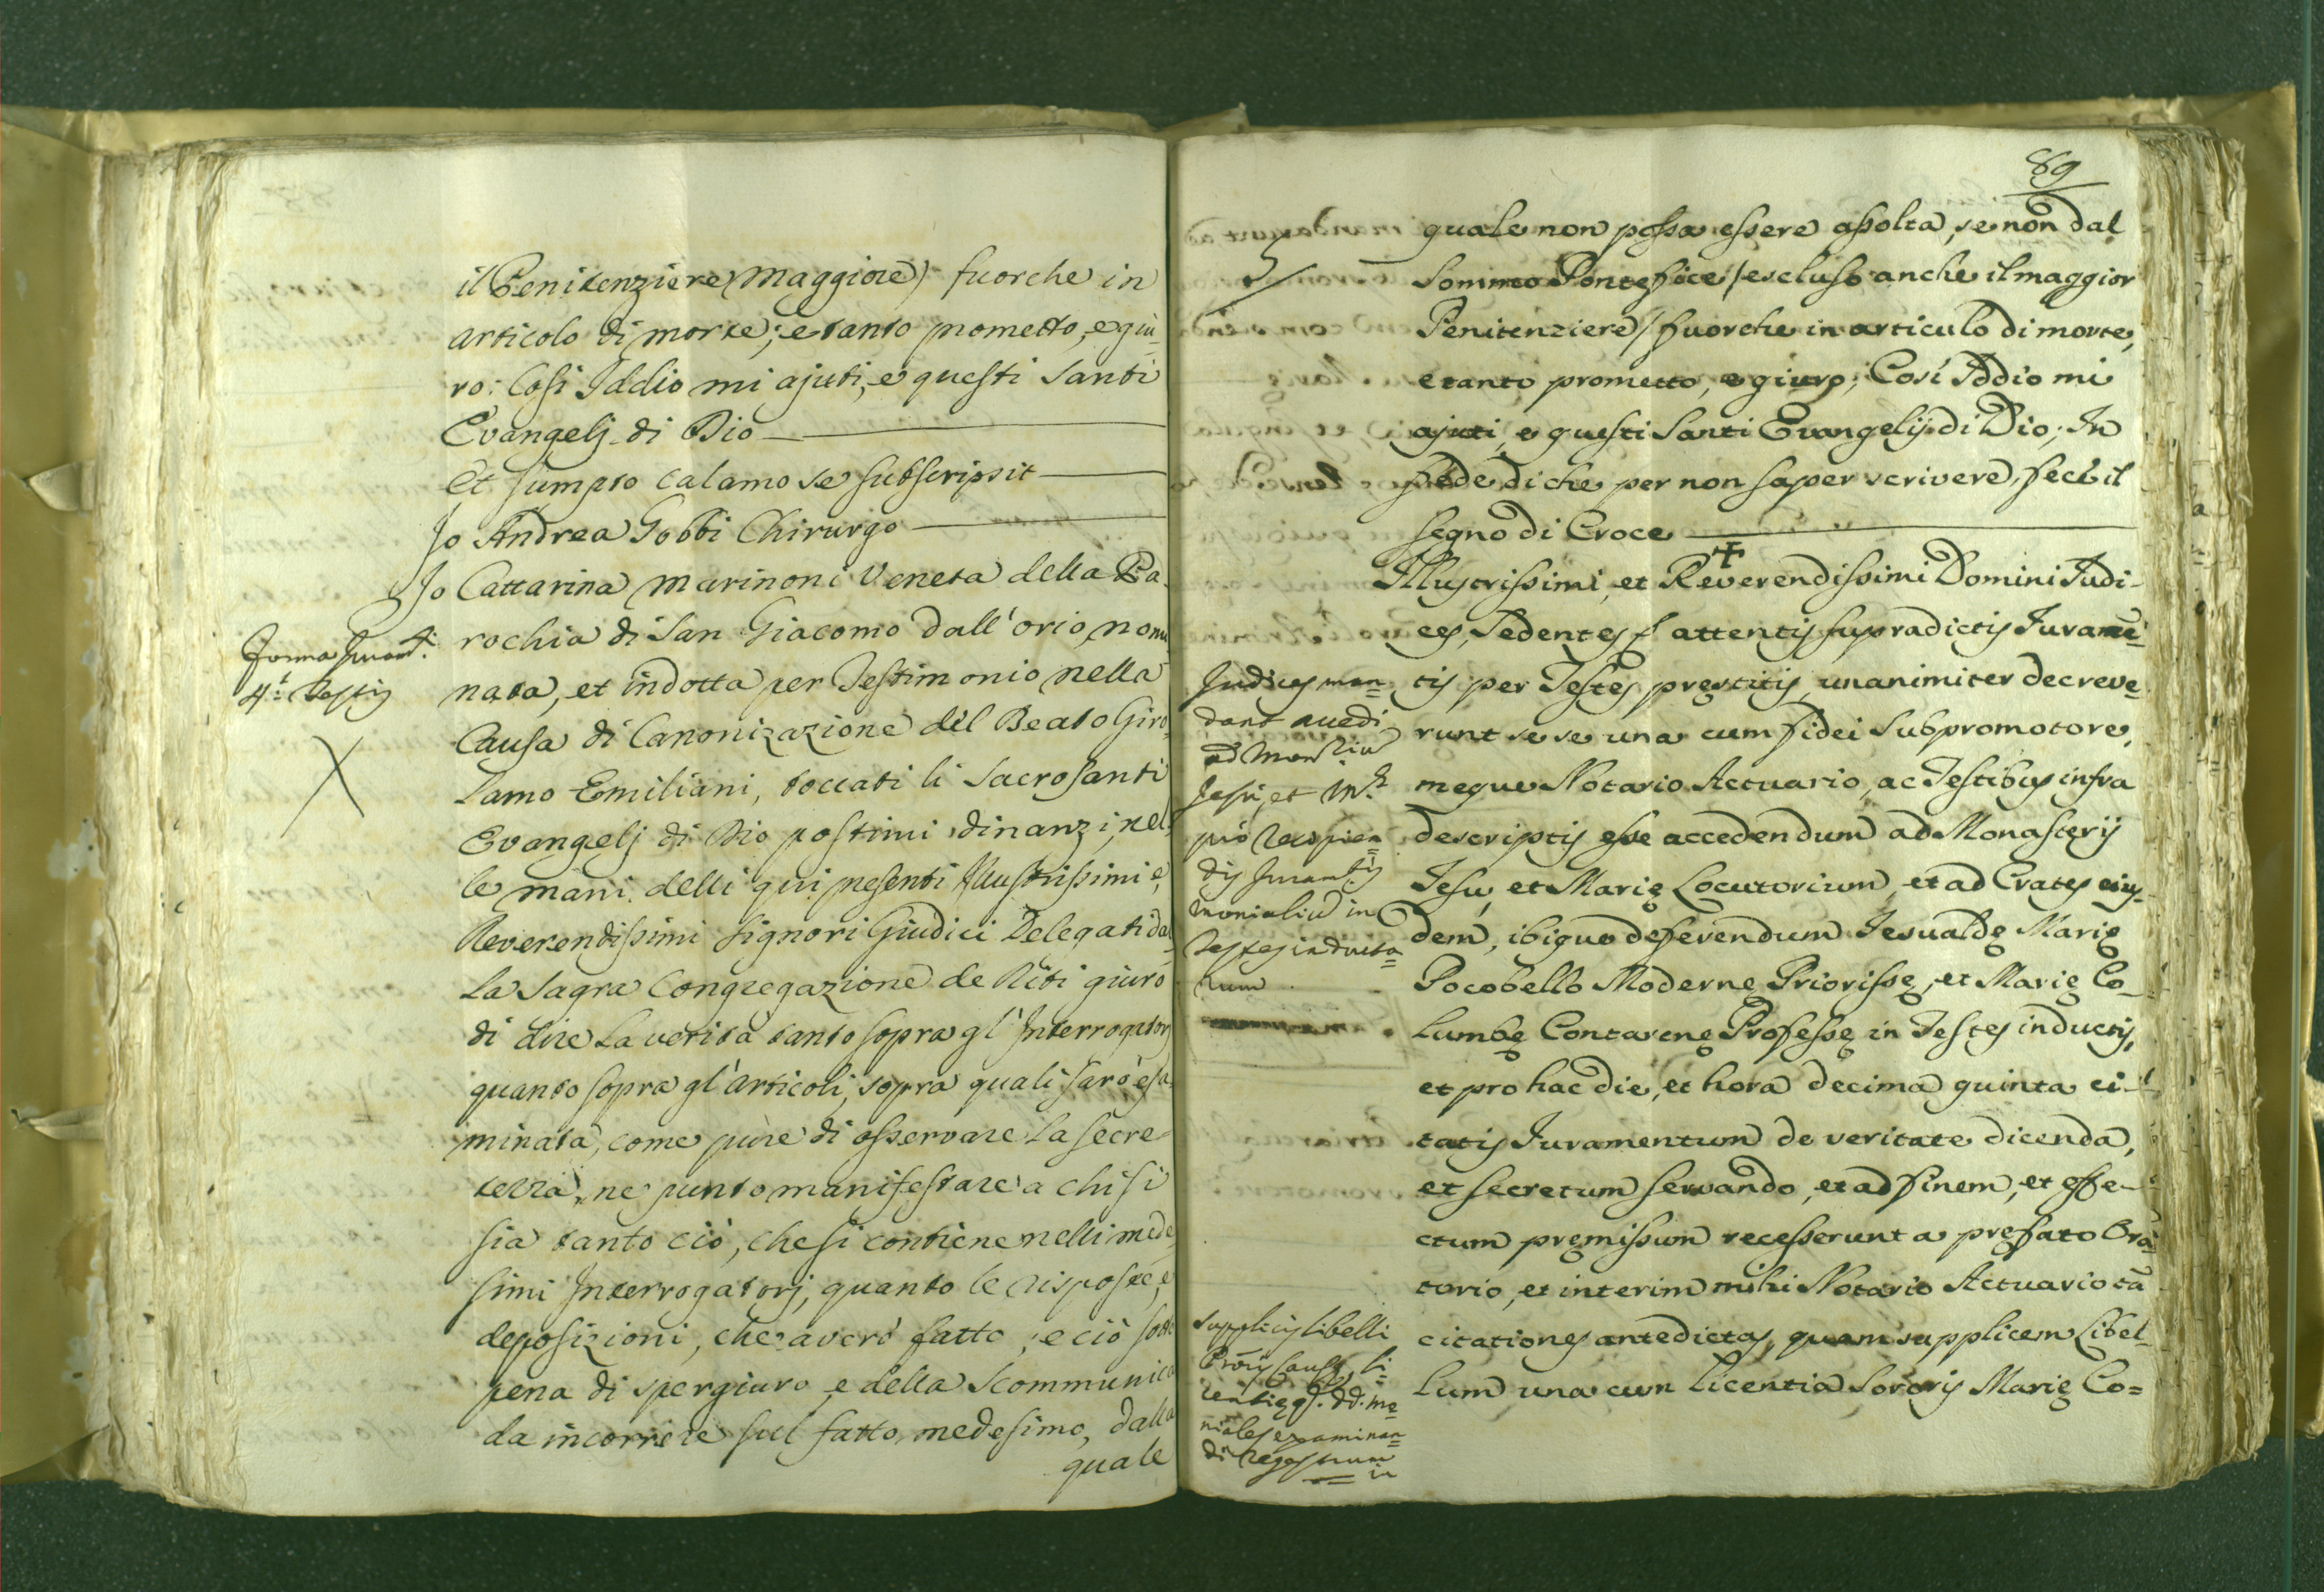 il Penitenziere Maggiore) fuorche in
articolo di morte; e tanto prometto, e giu=
ro: Cosi Iddio mi ajuti, e questi Santi
Evangelj di Dio
Et sumpto calamo se subscripsit
Io Andrea Gobbi Chirurgo
Io Cattarina Marinoni Veneta della Pa=
rochia di San Giacomo dall'orio, nomi
nata, et indotta per Testimonio nella
Causa di Canonizazione del Beato Giro
lamo Emiliani, toccati li Sacrosanti
Evangelj di Dio postimi dinanzi, nel=
le mani delli qui presenti Illustrissimi e,
Reverendissimi Signori Giudici Delegati dal
la Sagra Congregazione de Riti giuro
di dire la verità tanto sopra gl'Interrogatorj
quanto sopra gl'articoli, sopra quali sarò esa
minata, come pure di osservare la secre
tezza, ne punto manifestare a chi si
sia tanto ciò, che si contiene nelli mede
simi Interrogatorj, quanto le risposte, e
deposizioni, che averò fatto, e ciò sotto
pena di spergiuro e della Scommunica
da incorrere sul fatto medesimo, dalla
quale
Forma Juramti
4.i Testis
X
89
quale non possa essere assolta, se non dal
Sommo Pontefice / escluso anche il maggior
Penitenziere / fuorche in articulo di morte,
e tanto prometto, e giuro; Così Iddio mi
ajuti, e questi Santi Evangelij di Dio; In
fede di che per non saper scrivere, feci il
segno di Croce
+
Illustrissimi, et Reverendissimi Domini Judi-
ces, Sedentes attentis supradictis Juramē=
tis per Testes prestitis, unanimiter decreve=
runt se se una cum fidei Subpromotore,
meque Notario Actuario, ac Testibus infra
descriptis esse accedendum ad Monasterij
Jesu, et Marię Locutorium, et ad Crates eius-
dem, ibique deferendum Jesualdę Marię
Pocobello Modernę Priorissę, et Marię Co=
lumbę Contarenę Professę in Testes inductis,
et pro hac die, et hora decima quinta ci-
tatis Juramentum de veritate dicenda,
et secretum servando, et ad finem, et effe-
ctum pręmissum recesserunt a pręfato Ora=
torio, et interim mihi Notario Actuario tā
citationes antedictas, quam supplicem Libel=
lum una cum licentia Sororis Marię Co=
Judices man=
dant accedi
ad Monriũ
Jesu, et M.ę
pro recipien=
dis Juramtis
monialiũ in
Testes inducta=
rum
supplicis libelli
Causę, li=
centię q. dd. mo=
niales examinan=
di